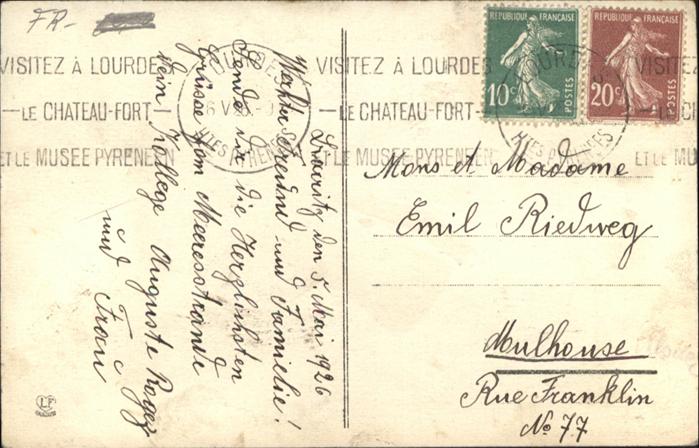 FR-
VISITEZ À LOURDES
— LE CHATEAU-FORT —
ET LE MUSEE PYRENEEN
LOURDES
HTES PYRENEES
REPUBLIQUE FRANÇAISE
10c POSTES
REPUBLIQUE FRANÇAISE
20c POSTES
VISITEZ À LOURDES
— LE CHATEAU-FORT —
ET LE MUSEE PYRENEEN
LOURDES
HTES PYRENEES
VISITEZ
— LE CH
ET LE MU
den 5. Mai 1926
Werthe Freund und Familie!
Sende dir die Herzlinsten
Grüsse fom Meeresstrande
Mein Kollege Auguste Roger
und Frau
Mons et Madame
Emil Riedweg
Mulhouse
Rue Franklin
No 77
LF